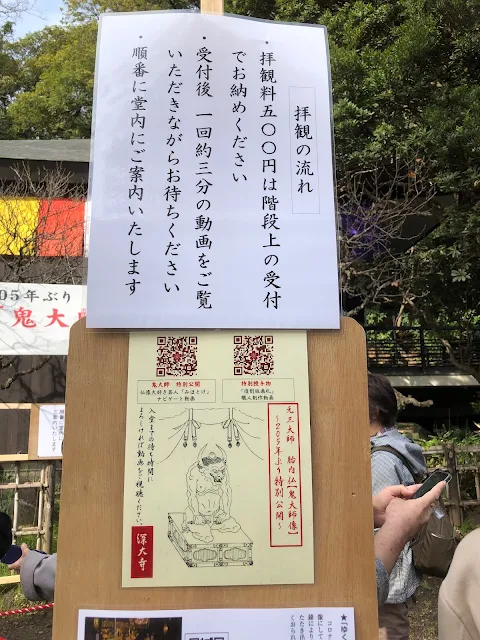 拝観の流れ
・拝観料五〇〇円は階段上の受付
でお納めください
・受付後 一回約三分の動画をご覧
いただきながらお待ちください
・順番に堂内にご案内いたします
05年ぶり
鬼大
鬼大師 特別公開
仏像大好き芸人「みほとけ」
ナビゲート動画
特別授与物
職人創作動画
元三大師 胎内仏【鬼大師像】
～205年ぶり特別公開～
入堂までの待ち時間に
よろしければ動画をご視聴ください。
深大寺